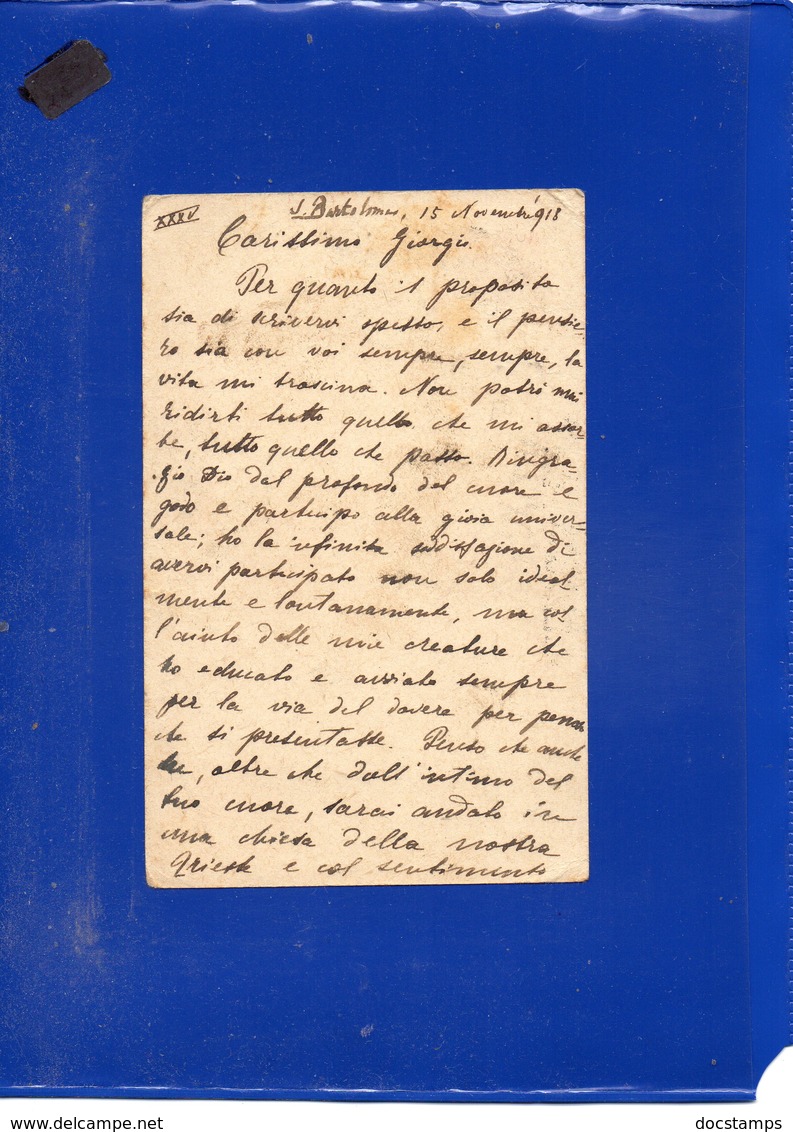 XXXV
S. Bartolomeo, 15 Novembre 918
Carissimo Giorgio.
Per quanto il proposito
sia di scrivervi spesso, e il pensie-
ro sia con voi sempre, sempre, la
vita mi trascina. Non potrò mai
ridirti tutto quello che mi assor-
be, tutto quello che passo. Ringra-
zio Dio dal profondo del cuore e
godo e partecipo alla gioia univer-
sale; ho la infinita soddisfazione di
avervi partecipato non solo ideal
mente e lontanamente, ma col
l'aiuto delle mie creature che
ho educato e avviato sempre
per la via del dovere per penosa
che si presentasse. Penso che anche
tu, oltre che dall'intimo del
tuo cuore, sarai andato in
una chiesa della nostra
Trieste e col sentimento
www.delcampe.net
docstamps